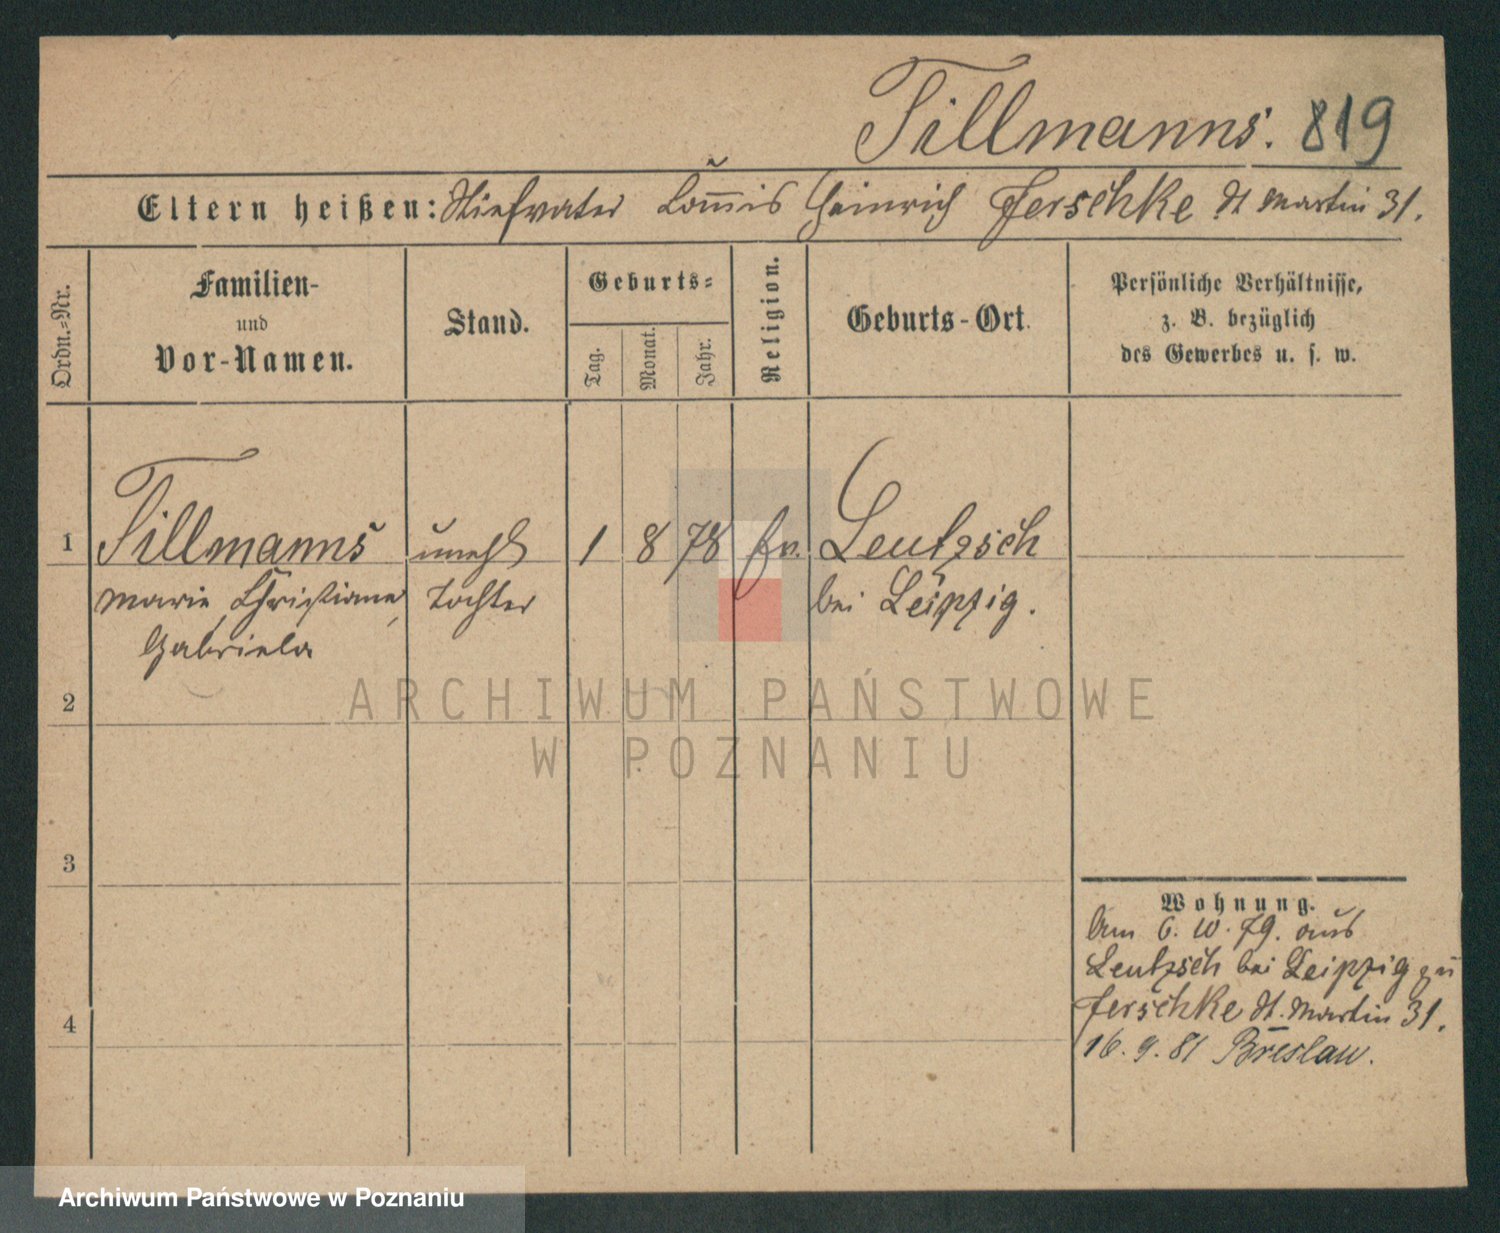 Tillmanns. 819
Eltern heißen: Stiefvater Com̄is Heinrich Jerschke St Martin 31.
Ordn.-Nr.
Familien-
und
Vor-Namen.
Stand.
Geburts-
Tag.
Monat.
Jahr.
Religion.
Geburts-Ort.
Persönliche Verhältnisse,
z. B. bezüglich
des Gewerbes u. s. w.
1 Tillmanns unehl 1 8 78 ev. Leutzsch
Marie, Christiane, Tochter bei Leipzig.
Gabriela
2
ARCHIWUM PAŃSTWOWE
W POZNANIU
3
Wohnung.
Am 6. 10. 79. aus
Leutzsch bei Leipzig zu
Jerschke St. Martin 31.
4
16. 9. 81 Breslau.
Archiwum Państwowe w Poznaniu